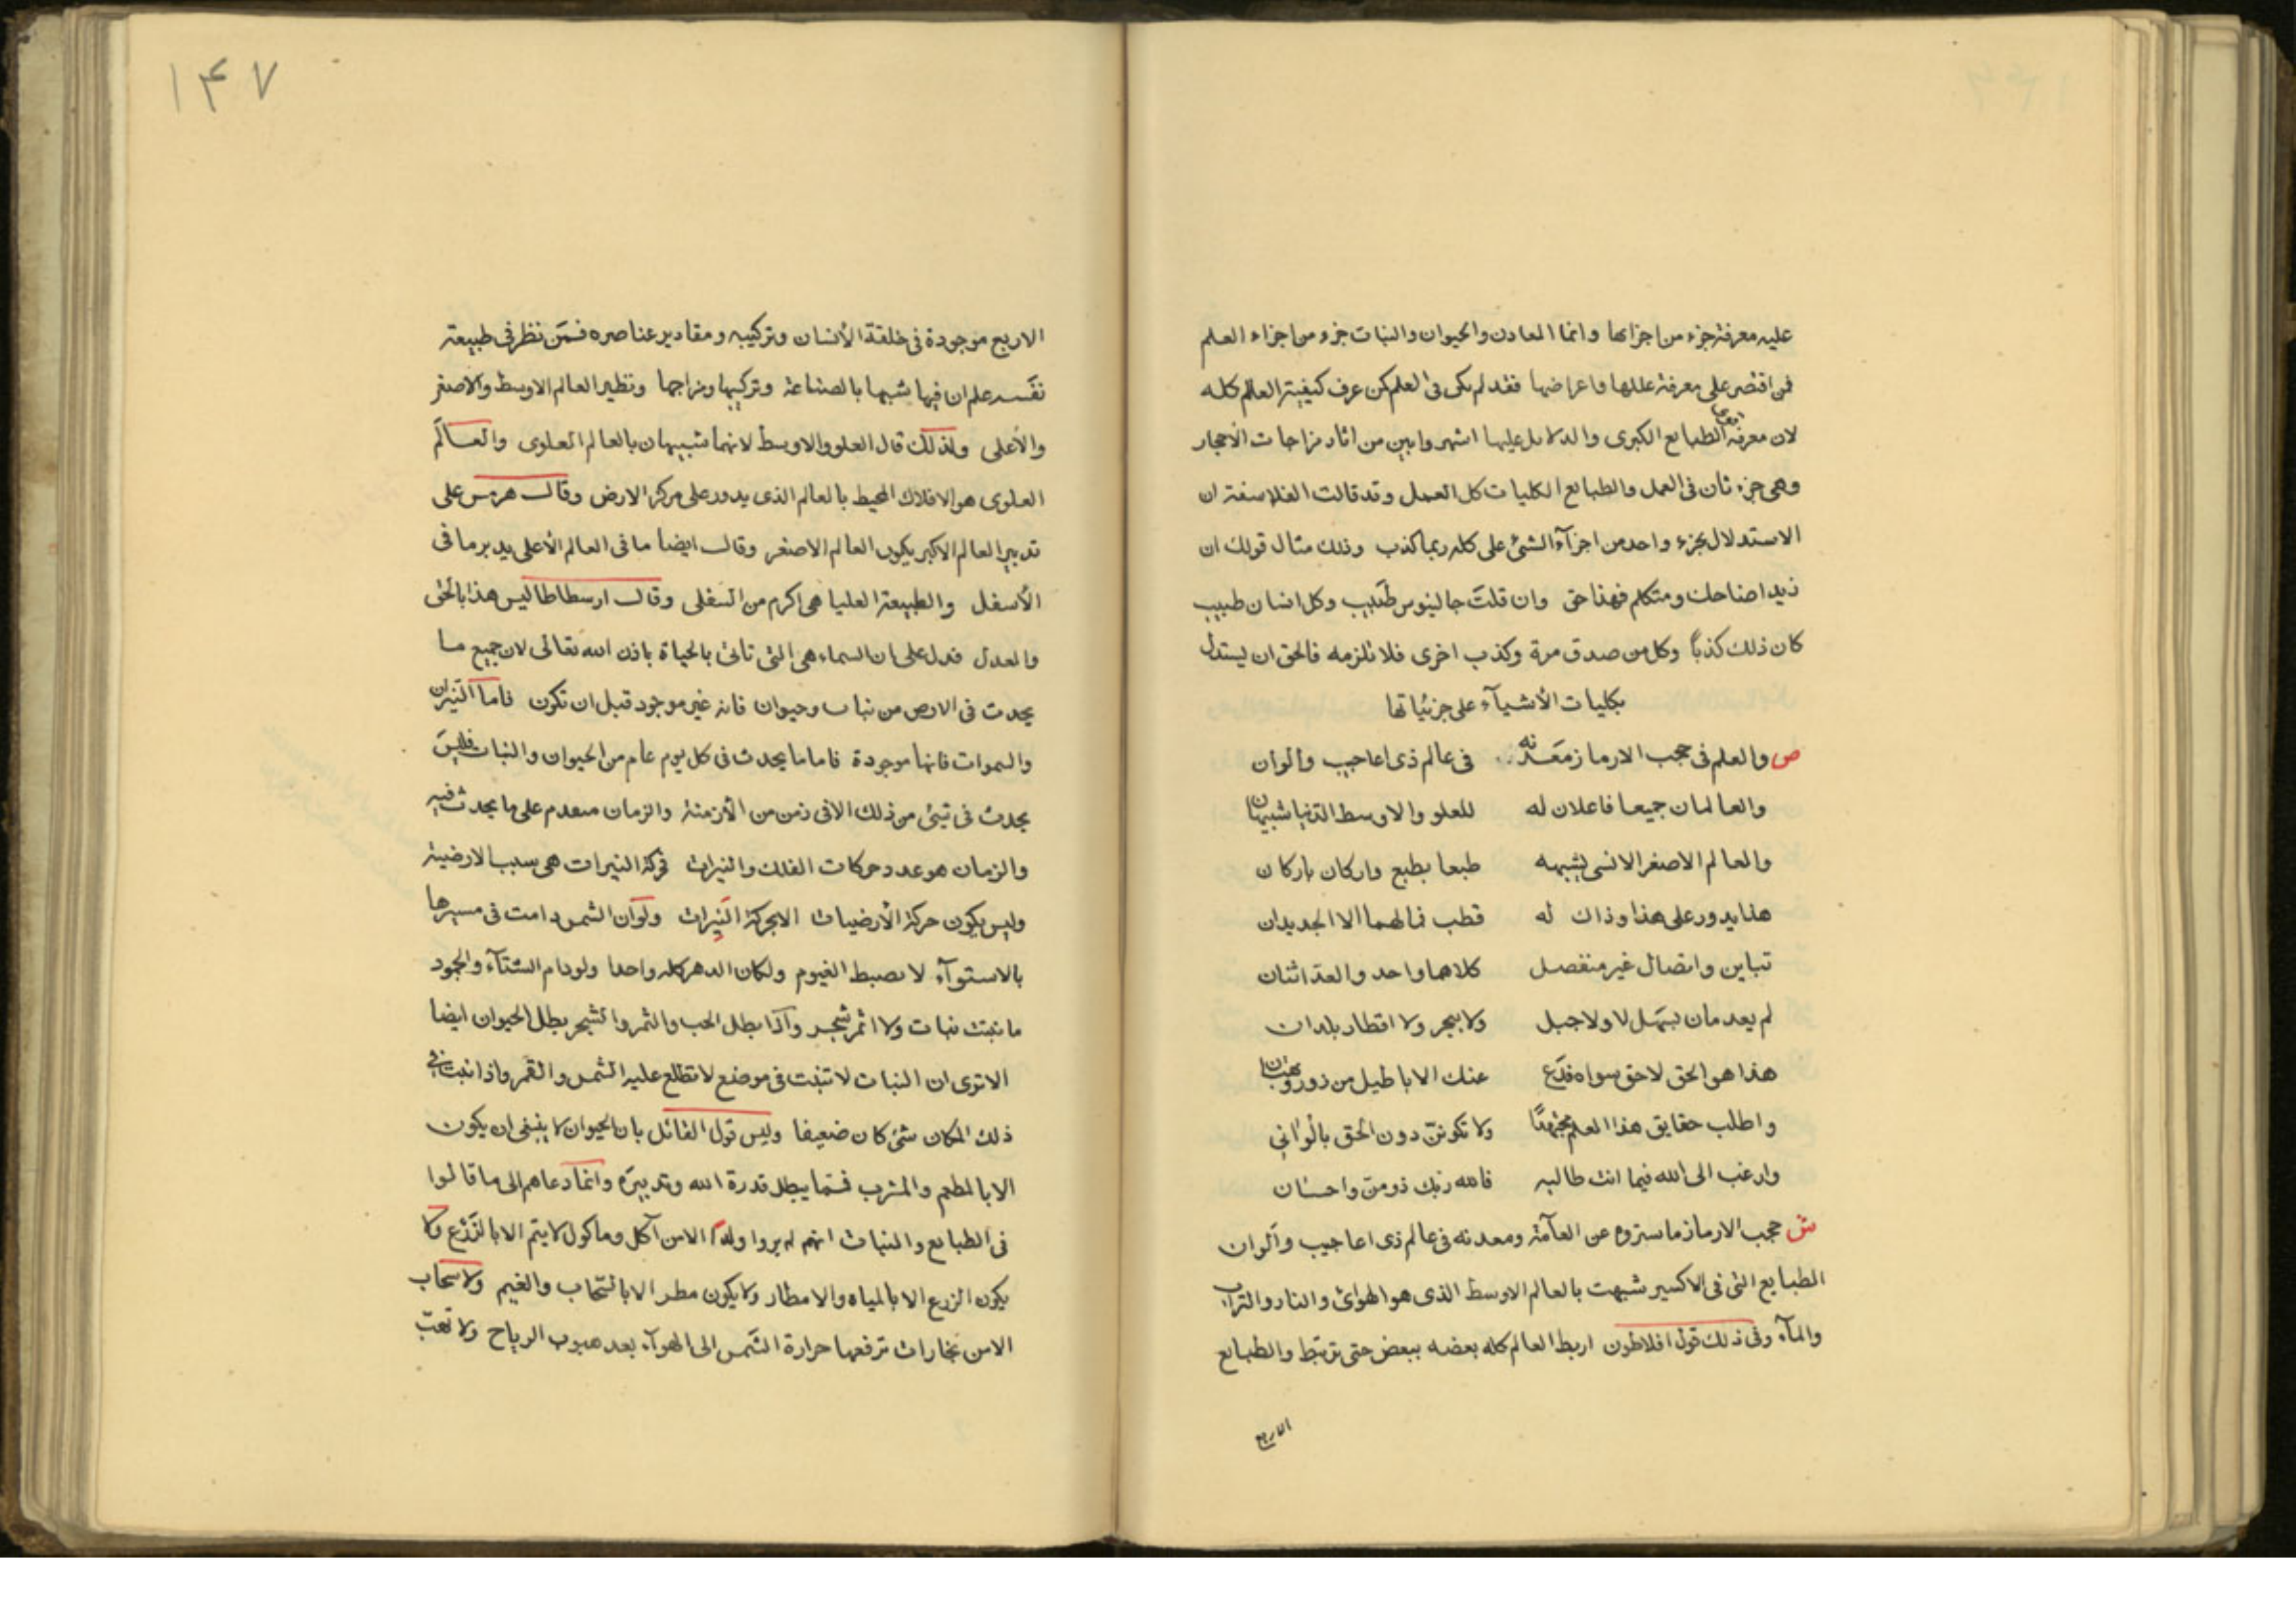 عليه معرفة جزء من اجزائها وانما المعادن والحيوان والنبات جزء من اجزاء العلم
فمن اقتصر على معرفة عللها واعراضها فقد لم يكن فى العلم كمن عرف كيفية العالم كله
لان معرفة الطبايع الكبرى والدلايل عليها اشهر وابين من اثار مزاجات الأحجار
وهى جزء ثان فى العمل والطبايع الكليات كل العمل وقد قالت الفلاسفة ان
الاستدلال بجزء واحد من اجزآء الشئ على كله ربما كذب وذلك مثال قولك ان
زيدا ضاحك ومتكلم فهذا حق وان قلت جالينوس طبيب وكل انسان طبيب
كان ذلك كذبا وكل من صدق مرة وكذب اخرى فلا تلزمه فالحق ان يستدل
بكليات الأشيآء على جزئياتها
ص والعلم فى حجب الارماز معدنه فى عالم ذى اعاجيب والوان
والعالمان جميعا فاعلان له للعلو والاوسط الدنيا شبيهان
والعالم الاصغر الانسى يشبهه طبعا بطبع واركان باركان
هذا يدور على هذا وذاك له قطب فمالهما الا الجديدان
تباين واتصال غير منفصل كلاهما واحد والعد اثنان
لم يعدمان بسهل لا ولا جبل ولا ببحر ولا اقطار بلدان
هذا هو الحق لا حق سواه فدع عنك الاباطيل من زور وبهتان
واطلب حقايق هذا العلم مجتهدًا ولا تكونن دون الحق بالوانى
وارغب الى الله فيما انت طالبه فالله ربك ذو من واحسان
ش حجب الارماز ما ستروه عن العآمة ومعدنه فى عالم ذى اعاجيب والوان
الطبايع التى فى الاكسير شبهت بالعالم الاوسط الذى هو الهوائ والنار والتراب
والمآء وفى ذلك قول افلاطون اربط العالم كله بعضه ببعض حتى ترتبط والطبايع
الاربع
١۴٧
الاربع موجودة فى خلقة الأنسان وتركيبه ومقادير عناصره فمن نظر فى طبيعة
نفسه علم ان فيها شبها بالصناعة وتركيبها ومزاجها ونظير العالم الاوسط والاصغر
والأعلى ولذلك قال العلو والاوسط لانهما شبيهان بالعالم العلوى والعالم
العلوى هو الافلاك المحيط بالعالم الذى يدور على مركز الارض وقال هرمس على
تدبير العالم الاكبر يكون العالم الاصغر وقال ايضا ما فى العالم الأعلى يدبر ما فى
الأسفل والطبيعة العليا هى اكرم من السفلى وقال ارسطاطاليس هذا بالحق
والعدل فدل على ان السماء هى التى تاتى بالحياة باذن الله تعالى لان جميع ما
يحدث فى الارض من نبات وحيوان فانه غير موجود قبل ان تكون فاما النيران
والسموات فانها موجودة فاما ما يحدث فى كل يوم عام من الحيوان والنبات فليس
يحدث فى شئ من ذلك الا فى زمن من الأزمنة والزمان متقدم على ما يحدث فيه
والزمان هو عدد حركات الفلك والنيرات فحركة النيرات هى سبب الارضية
وليس يكون حركة الأرضيات الا بحركة النيرات ولو ان الشمس دامت فى مسيرها
بالاستوآء لا تضبط الغيوم ولكان الدهر كله واحدا ولو دام الشتآء والجمود
ما نبتت نبات ولا اثمر شجر واذا بطل الحب والثمر والشجر بطل الحيوان ايضا
الا ترى ان النبات لا تنبت فى موضع لا تطلع عليه الشمس والقمر واذا نبت فى
ذلك المكان شئ كان ضعيفا وليس قول القائل بان الحيوان لا ينبغى ان يكون
الا بالمطعم والمشرب فيما يبطل قدرة الله وتدبيره وانما دعاهم الى ما قالوا
فى الطبايع والنبات انهم لم يروا ولدا الا من آكل وماكول لا يتم الا بالزرع ولا
يكون الزرع الا بالمياه والامطار ولا يكون مطر الا بالسحاب والغيم ولا سحاب
الا من بخارات ترفعها حرارة الشمس الى الهوآء بعد هبوب الرياح ولا تهب